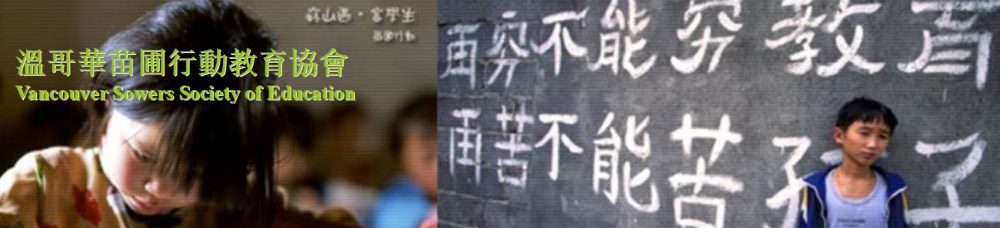 學生
苗圃行動
溫哥華苗圃行動教育協會
Vancouver Sowers Society of Education
再穷不能穷教育
再苦不能苦孩子